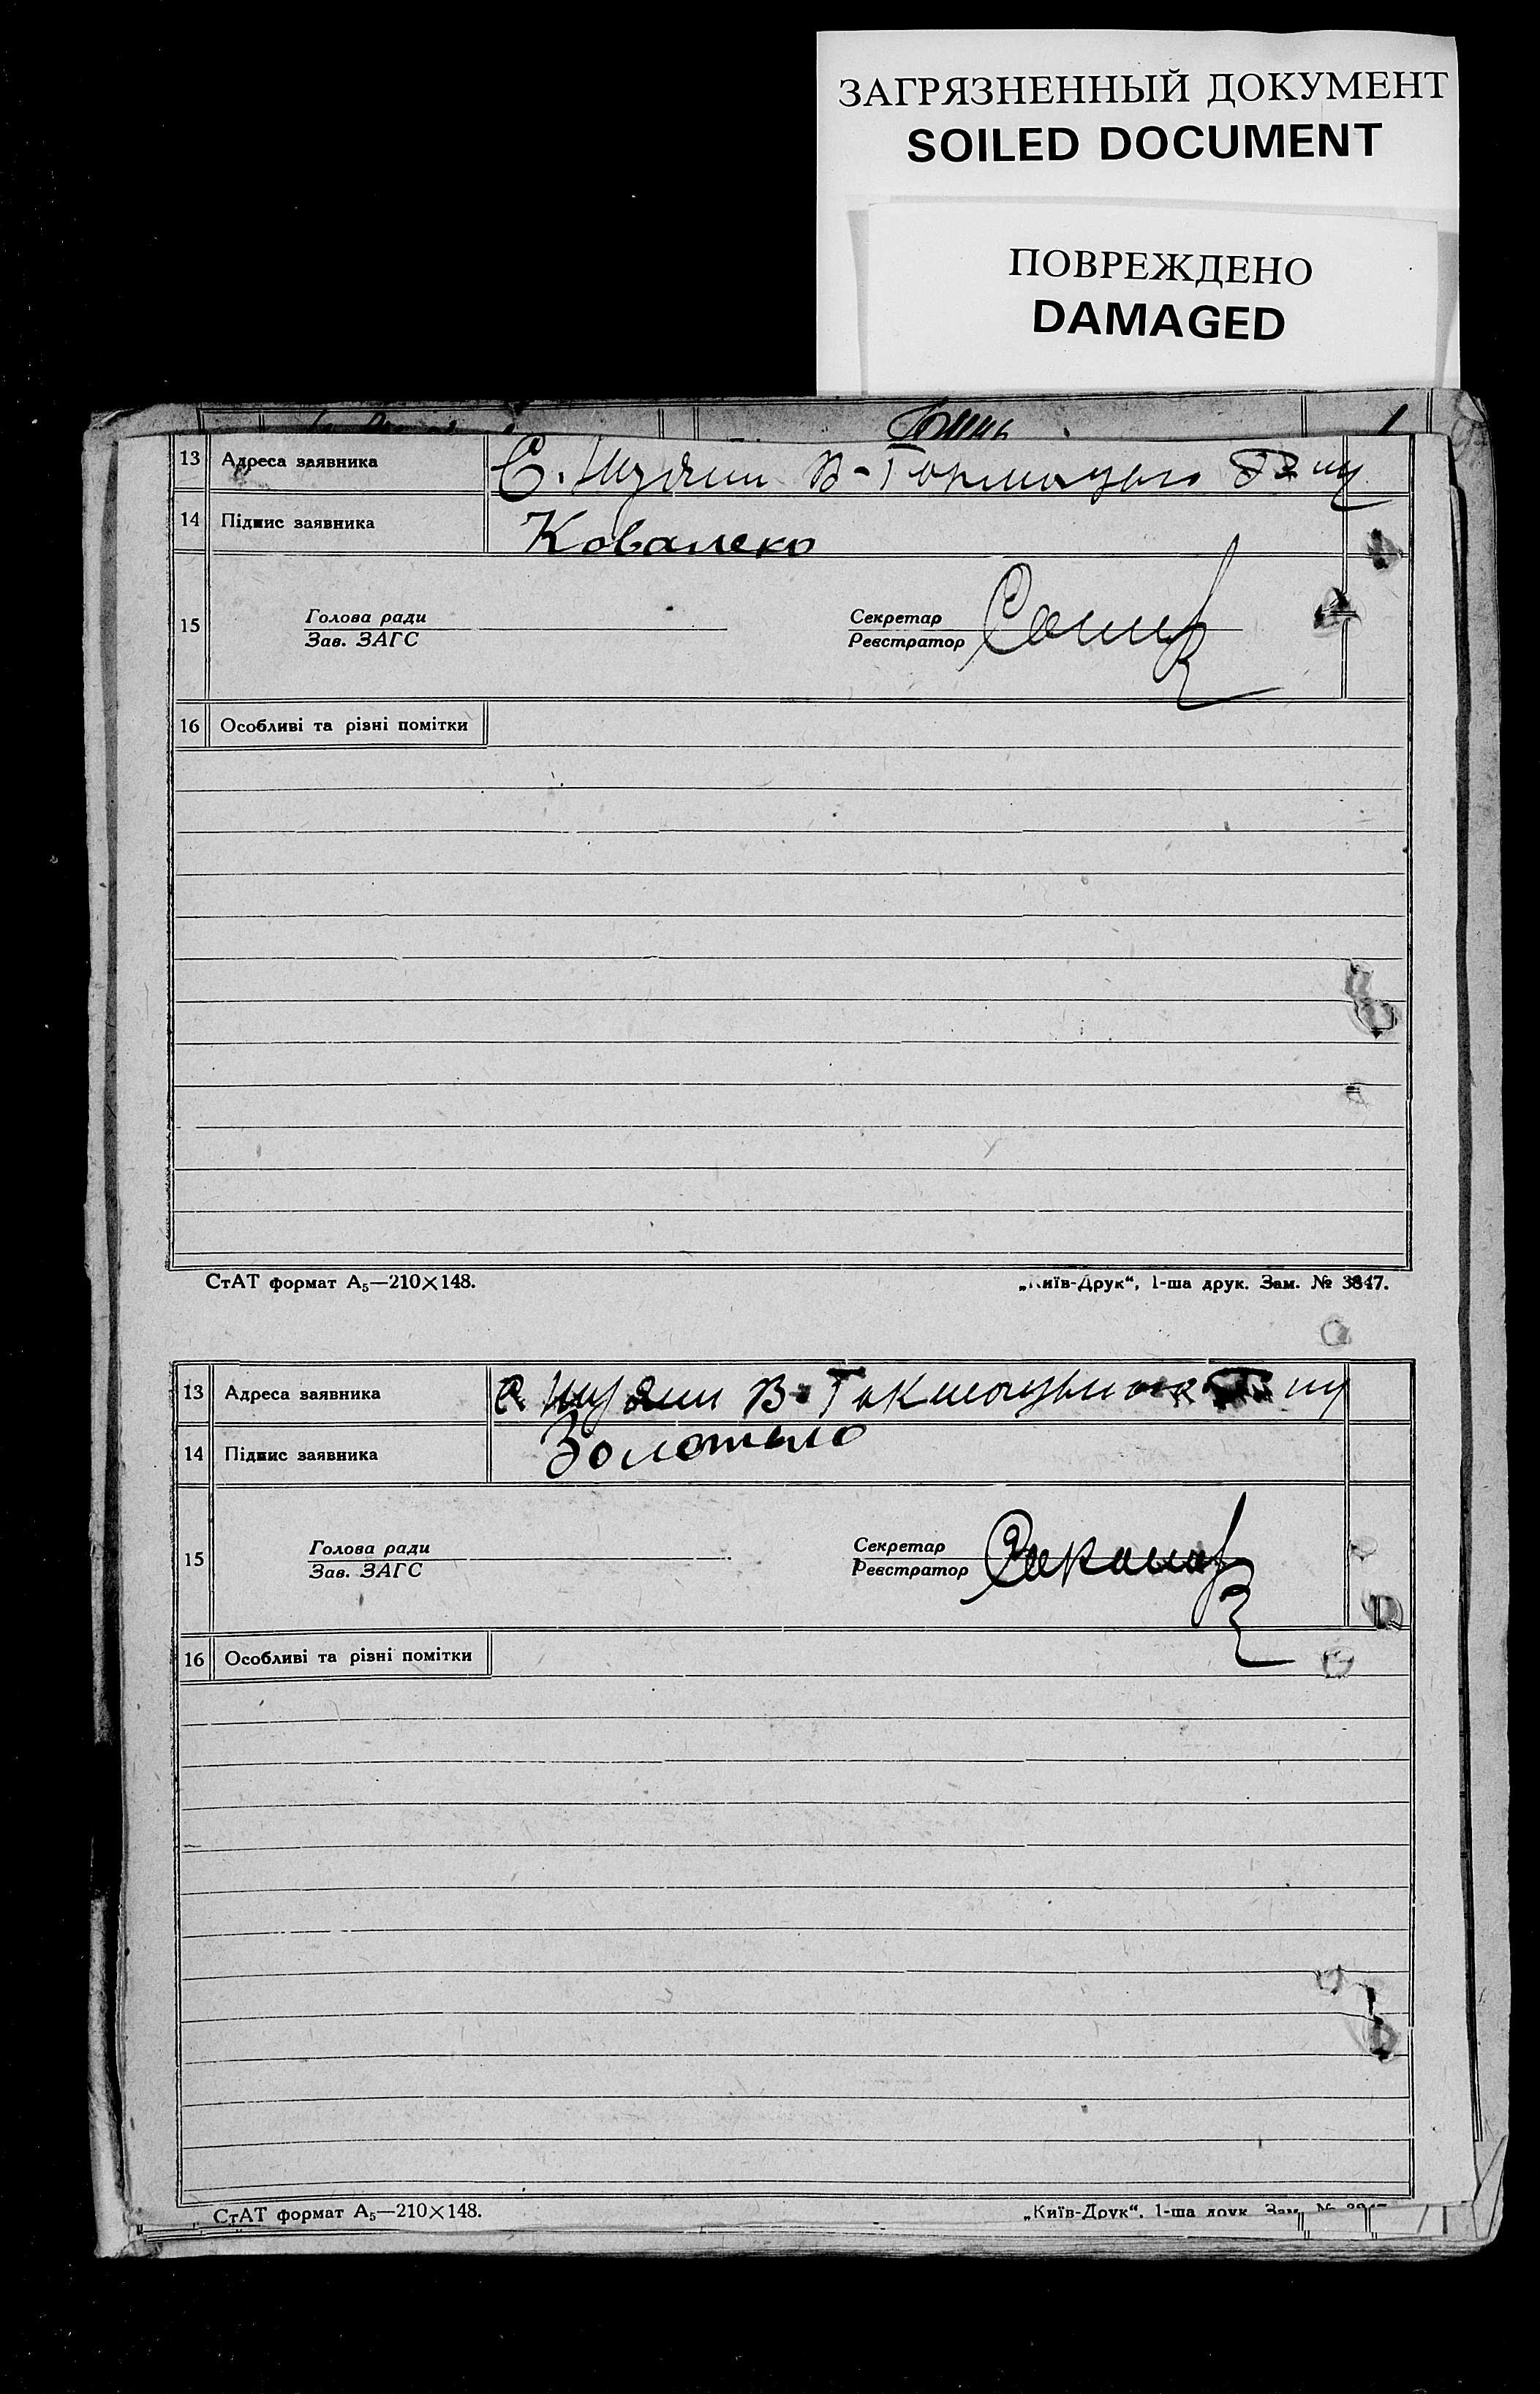 ЗАГРЯЗНЕННЫЙ ДОКУМЕНТ
SOILED DOCUMENT
ПОВРЕЖДЕНО
DAMAGED
13 Адреса заявника С.
14 Підпис заявника Ковалеко
15 Голова ради Секретар
Зав. ЗАГС Реєстратор
16 Особливі та різні помітки
СтАТ формат А₅—210×148. „Київ-Друк“, 1-ша друк. Зам. № 3847.
13 Адреса заявника с.
14 Підпис заявника
15 Голова ради Секретар
Зав. ЗАГС Реєстратор
16 Особливі та різні помітки
СтАТ формат А₅—210×148. „Київ-Друк“, 1-ша друк. Зам. №